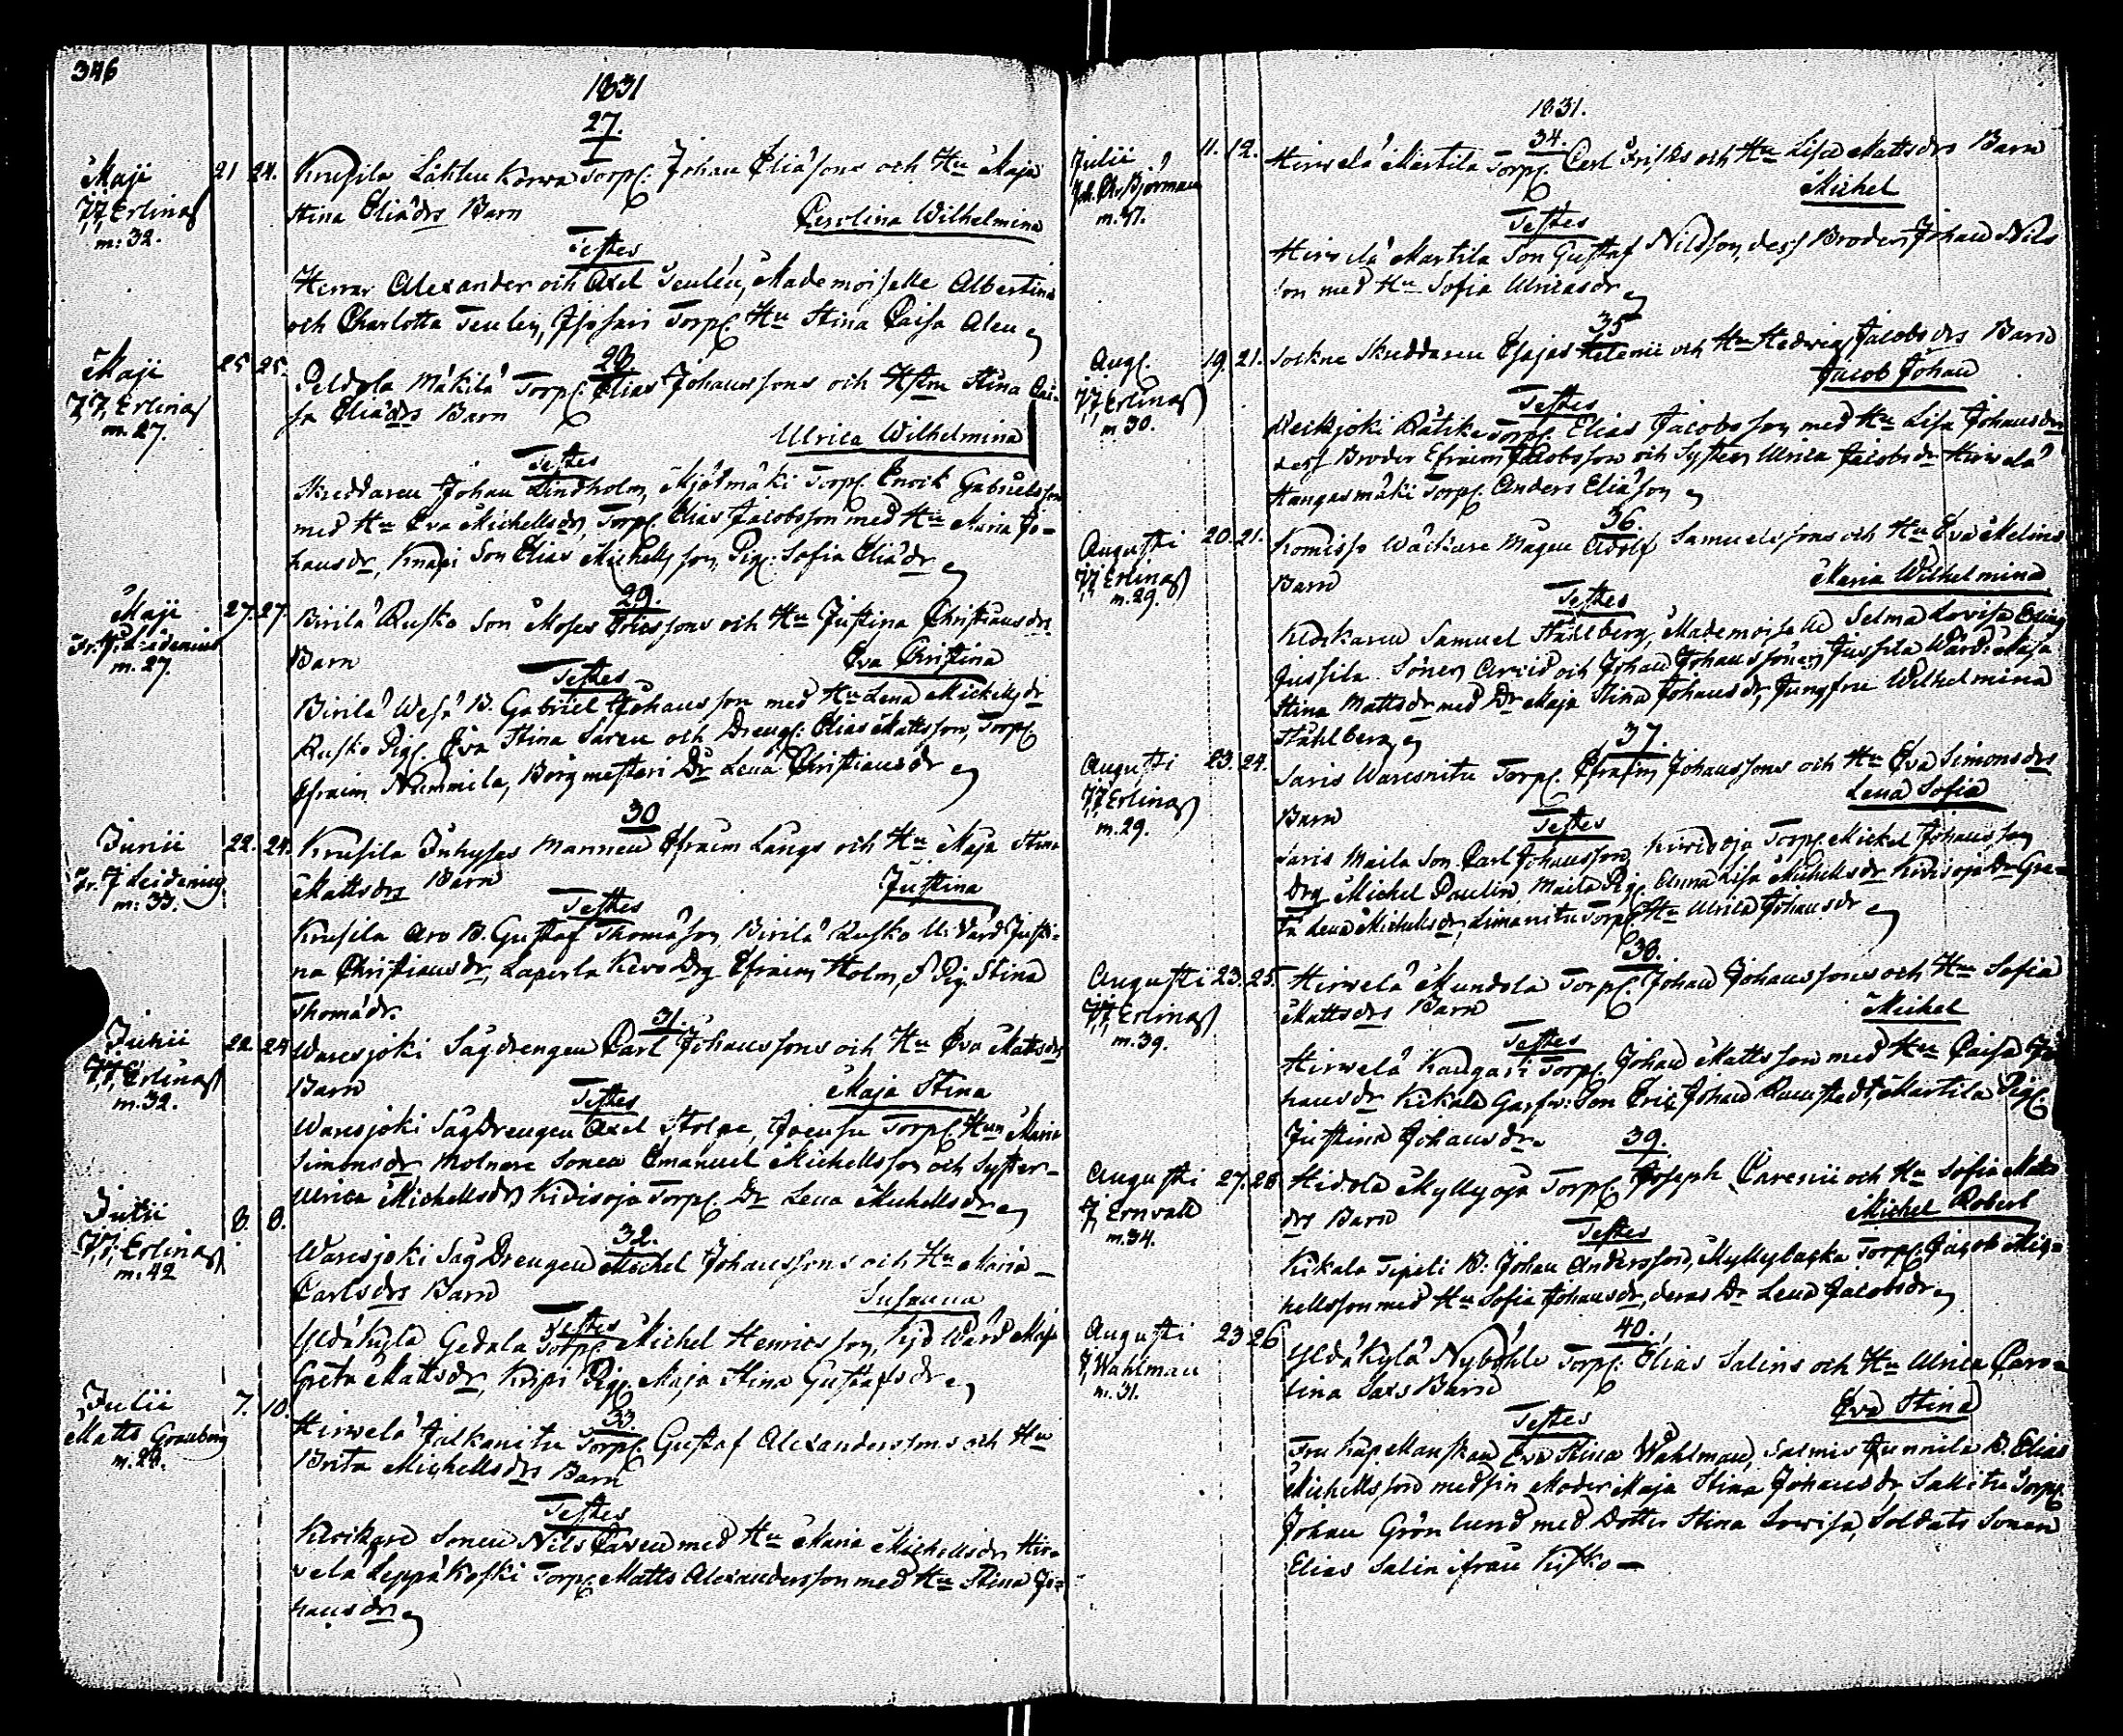 346
1831
27.
Maji 21 24. Krusila Lähten Korwa Torp: Johan Eliæsons och Hu Maja
J J Erling Stina Eliædrs Barn Carolina Wilhelmina
m: 32.
Testes
Herrar Alexander och Axel Teulen, Mademoiselle Albertina
och Charlotta Teulen, Torp: Hu Stina Caisa
28
Maji 25 25. Peldola Mäkilä Torp: Elias Johanssons och Hustru Stina Cai-
J J Erling sa Eliædrs Barn
m. 27. Ulrica Wilhelmina
Testes
Skreddaren Johan Lindholm, Torp: Enock Gabrielsson
med Hu Eva Michelsdr, Torp: Elias Jacobsson med Hu Maria Jo-
hansdr, Knapi Son Elias Michelsson, Pig: Sofia Eliædr
29.
Maji 27. 27. Birilä Rusko Son Moses Ericssons och Hu Justina Christiansdrs
Barn Eva Christina
m. 27.
Testes
Birilä Wesa B. Gabriel Johansson med Hu Lena Michelsdr
Rusko Pig: Eva Stina Saren och Dreng: Elias Mattsson, Torp:
Efraim Nummila, Borgmestari Dr Lena Christiansdr
30
Junii 22. 24. Krusila Juhyses Mannen Efraim Långs och Hu Maja Stina
Mattsdrs Barn Justina
m: 33.
Testes
Krusila Aro B. Gustaf Thomæson, Birilä Rusko Justi-
na Christiansdr, Laperla Kero Drg Efraim Holm, Pig. Stina
Thomædr.
31.
Junii 22 24 Waresjoki Sågdrengen Carl Johanssons och Hu Eva Mattsdrs
J J Erling Barn Maja Stina
m. 32.
Testes
Waresjoki Sågdrengen Axel Stolpe, Torp: Hu Maria
Simonsdr Molnare Sonen Emanuel Michelsson och Syster
Ulrica Michelsdr Kidisoja Torp: Dr Lena Michelsdr
32.
Julii 8. 8. Waresjoki Sågdrengen Michel Johanssons och Hu Maria
J J Erling Carlsdrs Barn Susanna
m. 42
Testes
Yldäkylä Gedala Torp: Michel Henricsson, Wärd Maja
Greta Mattsdr, Knipi Pig: Maja Stina Gustafsdr
33.
Julii 7. 10. Hirwelä Jalkanitu Torp: Gustaf Alexanderssons och Hu
Matts Granberg Brita Michelsdrs Barn
m. 28.
Testes
Klockare Sonen Nils Caren med Hu Maria Michelsdr Hir-
velä Leppäkoski Torp: Matts Alexandersson med Hu Stina Jo-
hansdr
1831.
34.
Julii 11. 12. Hirwelä Martila Torp: Carl och Hu Lisa Mattsdrs Barn
Joh. Chr. Björman Michel
m. 37.
Testes
Hirwelä Martila Son Gustaf Nilsson, dess Broder Johan Nils
son med Hu Sofia Ulricasdr
35
Aug: 19. 21. Sockne Skreddaren Esajas Helenii och Hu Hedwig Jacobsdrs Barn
J J Erling Jacob Johan
m 30.
Testes
Reikjoki Rätike Torp: Elias Jacobsson med Hu Lisa Johansdr
dess Broder Efraim Jacobsson och Syster Ulrica Jacobsdr Hirwelä
Hangasmäki Torp: Anders Eliæson
36.
Augusti 20. 21. Komisso Wäckare Mågen Adolf Samuelssons och Hu Eva Melins
J J Erling Barn Maria Wilhelmina
m. 29.
Testes
Klockaren Samuel Ståhlberg, Mademoiselle Selma Lovisa Erling
Jussila Söner Arvid och Johan Johanssöner, Jussila Wärd: Maja
Stina Mattsdr med Dr Maja Stina Johansdr, Jungfru Wilhelmina
Ståhlberg
37.
Augusti 23. 24. Saris Waresnitu Torp: Efraim Johanssons och Hu Eva Simonsdrs
J J Erling Barn Lena Sofia
m. 29.
Testes
Saris Maila Son Carl Johansson, Kidisoja Torp: Mickel Johansson
Drg Michel Paulin, Maila Pig: Anna Lisa Michelsdr Kidisoja Dr Gre-
ta Lena Michelsdr, Limanitu Torp: Hu Ulrica Johansdr
38.
Augusti 23. 25. Hirwelä Mundola Torp: Johan Johanssons och Hu Sofia
J J Erling Mattsdrs Barn Michel
m. 39.
Testes
Hirwelä Kangari Torp: Johan Mattsson med Hu Caisa Jo
hansdr Kikala Son Eric Johan Martila Pig:
Justina Johansdr
39.
Augusti 27. 28 Hidola Myllyoja Torp: Joseph Carenii och Hu Sofia Matts
J Ernvall drs Barn Michel Robert
m. 34.
Testes
Kikala Tipeti B: Johan Andersson, Myllylaska Torp: Jacob Mic-
helsson med Hu Sofia Johansdr, deras Dr Lena Jacobsdr
40.
Augusti 23 26 Yldäkylä Nyböhle Torp: Elias Salins och Hu Ulrica Caro-
J Wahlman lina Sals Barn
m. 31. Eva Stina
Testes
Fru Kap. Manskan Eva Stina Wahlman, Salmis Junnila B. Elias
Michelsson med sin Moder Maja Stina Johansdr Torp:
Johan Grönlund med Dotter Stina Lovisa, Soldats Sonen
Elias Salin ifrån Kisko